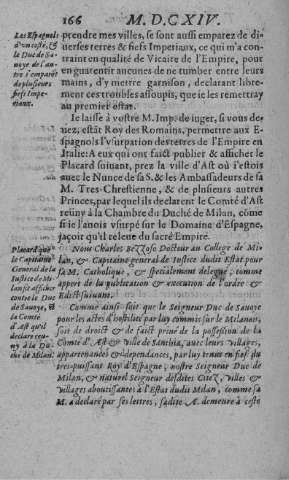 166 M. D. CXIV.
Les Espagnols
d'un costé, &
le Duc de Sa-
uoye de l'au-
tre s'emparẽt
de plusieurs
fiefs Impe-
riaux.
prendre mes villes, se sont aussi emparez de di-
uerses terres & fiefs Imperiaux, ce qui m'a con-
traint en qualité de Vicaire de l'Empire, pour
en guarentir aucunes de ne tumber entre leurs
mains, d'y mettre garnison, declarant libre-
ment ces troubles assoupis, que ie les remettray
au premier estat.
Ie laisse à vostre M. Imp. de iuger, si vous de-
uez, estãt Roy des Romains, permettre aux E-
spagnols l'vsurpation des terres de l'Empire en
Italie: A eux qui ont faict publier & afficher le
Placard suiuant, prez la ville d'Ast où i'estois
auec le Nunce de sa S. & les Ambassadeurs de sa
M. Tres-Chrestienne, & de plusieurs autres
Princes, par lequel ils declarent le Comté d'Ast
reüny à la Chambre du Duché de Milan, cõme
si ie l'anois vsurpé sur le Domaine d'Espagne,
jaçoit qu'il releue du sacré Empire.
Placard que
le Capitaine
General de la
Iustice de Mi-
lan fit afficher
contre le Duc
de Sauoye, où
le Comté
d'Ast qu'il
declare reü-
ny à la Du-
ché de Milan.
Nous Charles Bezzosо Docteur au College de Mi-
lan, & Capitaine general de Iustice dudit Estat pour
sa M. Catholique, & specialement delegué, comme
appert de la publication & execution de l'ordre &
Edict suiuant.
Comme ainsi soit que le Seigneur Duc de Sauoye
pour les actes d'hostilité par luy commis sur le Milanez,
soit de droict & de faict priué de la possession de la
Comté d'Ast & ville de Santhia, auec leurs villages,
appartenances & dependances, par luy tenus en fief du
trespuissant Roy d'Espagne, nostre Seigneur Duc de
Milan, & naturel Seigneur desdites Citez, villes &
villages aboutissantes à l'Estat dudit Milan, comme sa
M. a declaré par ses lettres, sadite A. demeure à ceste